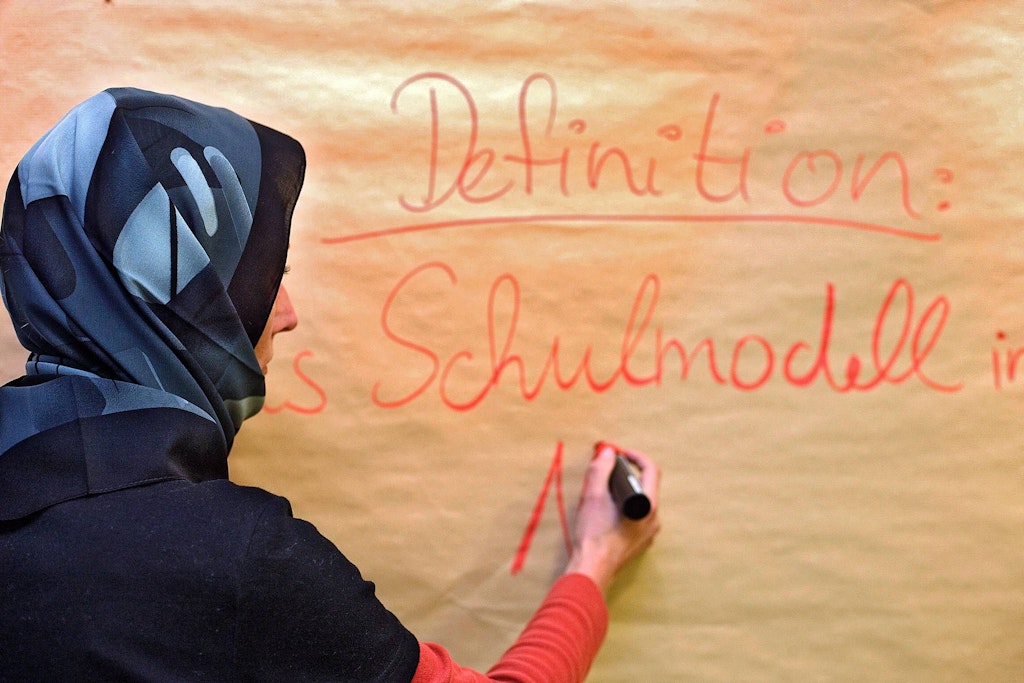 Definition:
Schulmodell in